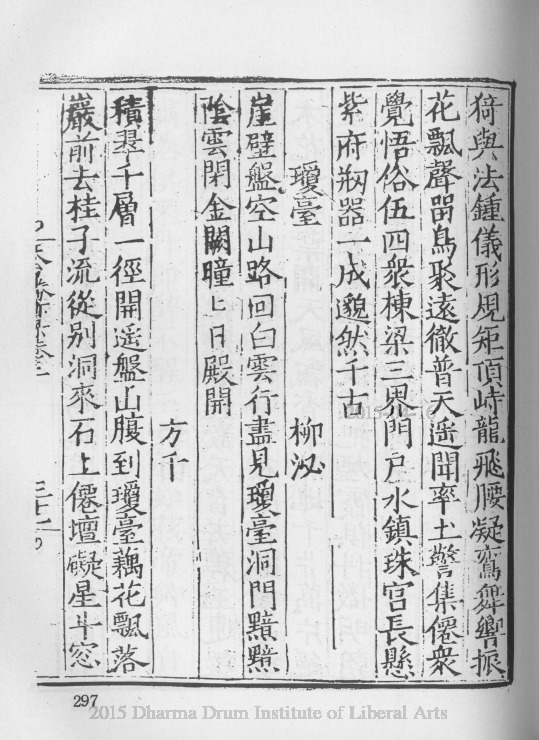 猗與法鍾儀形規矩頂峙龍飛腰凝鸞舞響振
花飄聲留鳥聚遠徹普天遙聞率土警集僊衆
覺悟俗伍四衆棟梁三界門戶水鎮珠宮長懸
紫府剏器一成邈然千古
瓊臺 柳泌
崖壁盤空山路回白雲行盡見瓊臺洞門黯黯
陰雲閉金闕曈曈日殿開
方干
積翠千層一徑開遥盤山腹到瓊臺藕花飄落
巖前去桂子流從别洞來石上僊壇礙星斗窓
三十一
297
2015 Dharma Drum Institute of Liberal Arts